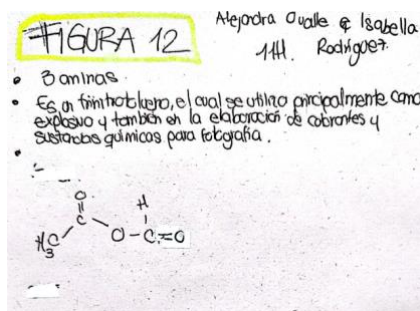 FIGURA 12
Alejandra Ovalle & Isabella
11H. Rodríguez.
• 3 aminas.
• Es un trinitrotolueno, el cual se utiliza principalmente como
explosivo y también en la elaboración de colorantes y
sustancias químicas para fotografía.
O
C
H
H₃C
O-C=O